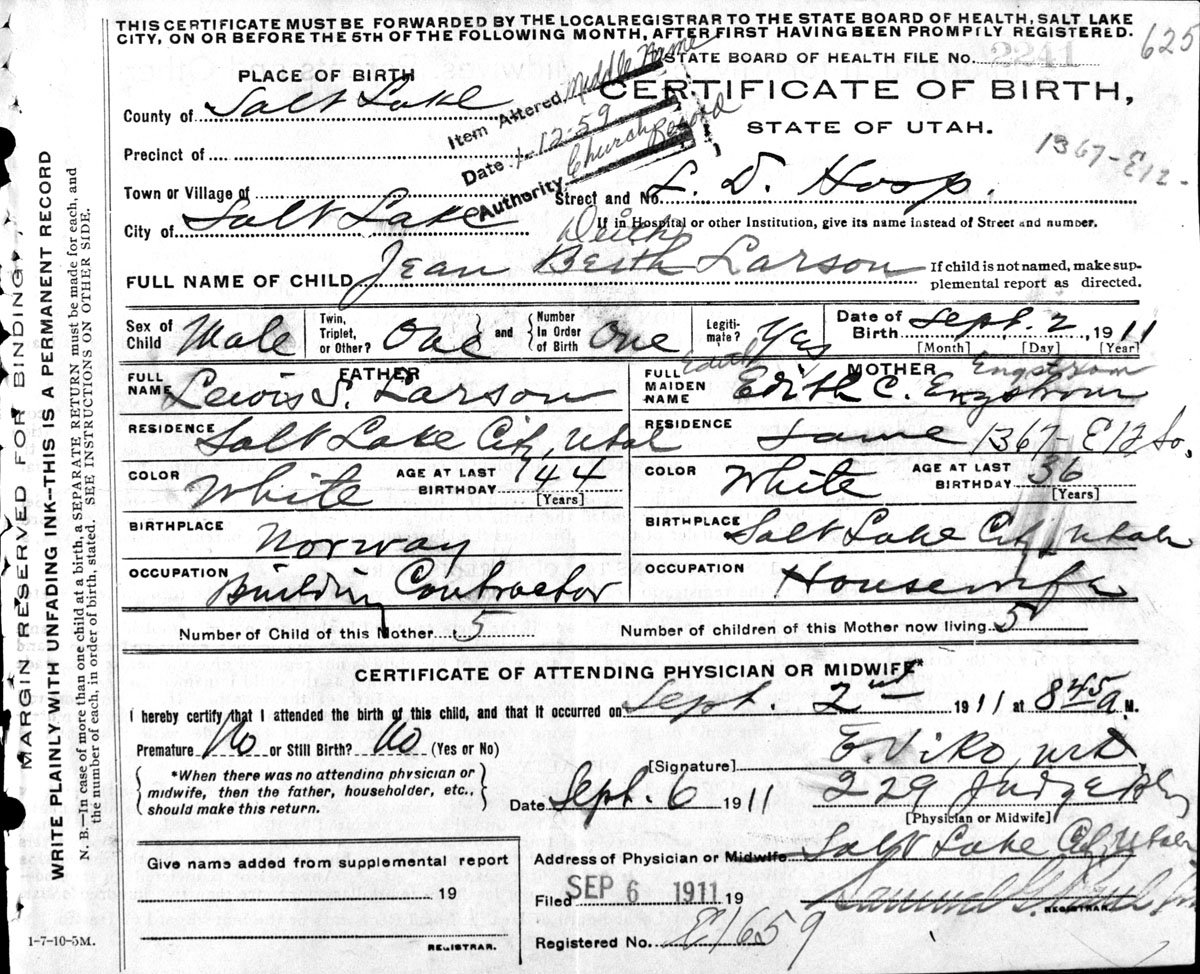 THIS CERTIFICATE MUST BE FORWARDED BY THE LOCAL REGISTRAR TO THE STATE BOARD OF HEALTH, SALT LAKE
CITY, ON OR BEFORE THE 5TH OF THE FOLLOWING MONTH, AFTER FIRST HAVING BEEN PROMPTLY REGISTERED.
625
STATE BOARD OF HEALTH FILE No. 2241
PLACE OF BIRTH
CERTIFICATE OF BIRTH,
STATE OF UTAH.
County of Salt Lake
Item Altered Middle Name
Date 1-12-59
Authority Church Record
Precinct of
1367-E12-
Town or Village of
Street and No. L. D. Hosp.
City of Salt Lake
If in Hospital or other Institution, give its name instead of Street and number.
FULL NAME OF CHILD Jean Beith Larson
If child is not named, make sup-
plemental report as directed.
Sex of Child Male
Twin, Triplet, or Other? One
and
Number In Order of Birth One
Legiti-mate? Yes
Date of Birth Sept. 2, 1911
[Month] [Day] [Year]
FATHER
FULL NAME Lewis S. Larson
RESIDENCE Salt Lake City, Utah
COLOR White
AGE AT LAST BIRTHDAY 44
[Years]
BIRTHPLACE Norway
OCCUPATION Building Contractor
MOTHER
Edith
Engstrom
FULL MAIDEN NAME Edith C. Engstrom
RESIDENCE Same 1367-E 12 So.
COLOR White
AGE AT LAST BIRTHDAY 36
[Years]
BIRTHPLACE Salt Lake City, Utah
OCCUPATION Housewife
Number of Child of this Mother 5
Number of children of this Mother now living 5
CERTIFICATE OF ATTENDING PHYSICIAN OR MIDWIFE*
I hereby certify that I attended the birth of this child, and that it occurred on Sept. 2nd 1911 at 8 45 a M.
Premature No or Still Birth? No (Yes or No)
*When there was no attending physician or
midwife, then the father, householder, etc.,
should make this return.
[Signature] E. Viko, M.D.
Date Sept. 6 1911
229 Judge Bldg
[Physician or Midwife]
Address of Physician or Midwife Salt Lake City, Utah
Give name added from supplemental report
19
REGISTRAR.
Filed SEP 6 1911 19
REGISTRAR
Registered No. 1659
1-7-10-5M.
MARGIN RESERVED FOR BINDING
WRITE PLAINLY WITH UNFADING INK--THIS IS A PERMANENT RECORD
N. B.—In case of more than one child at a birth, a SEPARATE RETURN must be made for each, and
the number of each, in order of birth, stated. SEE INSTRUCTIONS ON OTHER SIDE.